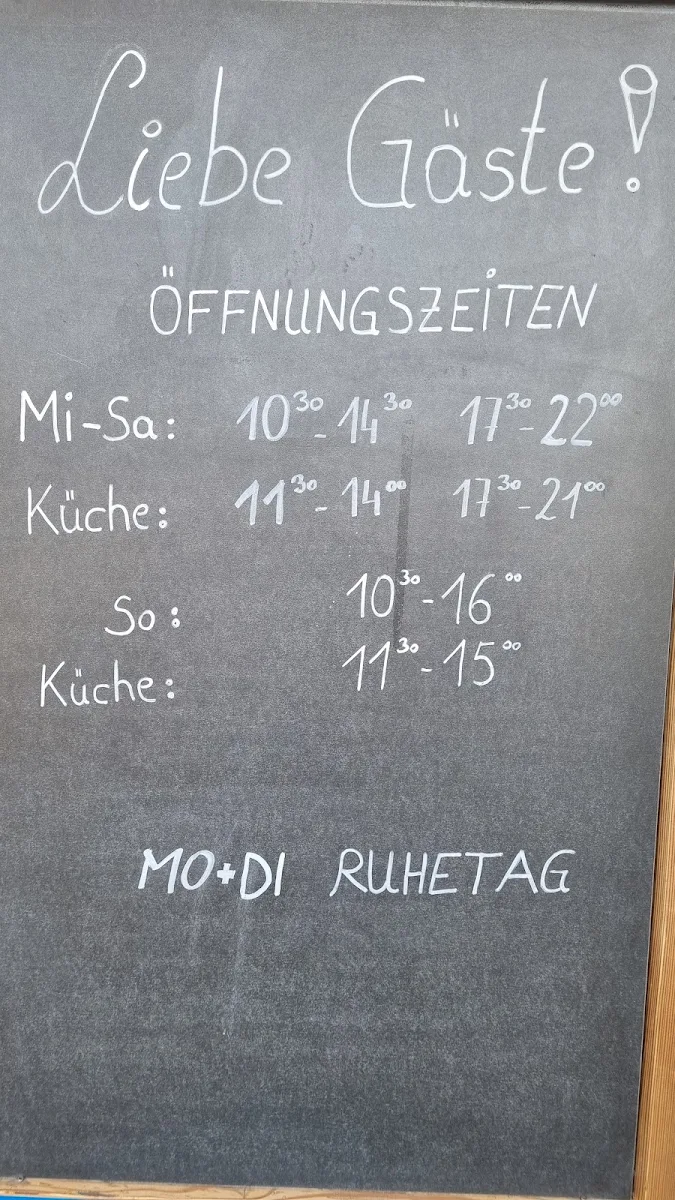 Liebe Gäste!
ÖFFNUNGSZEITEN
Mi-Sa: 10³⁰-14³⁰ 17³⁰-22⁰⁰
Küche: 11³⁰-14⁰⁰ 17³⁰-21⁰⁰
So: 10³⁰-16⁰⁰
Küche: 11³⁰-15⁰⁰
MO+DI RUHETAG